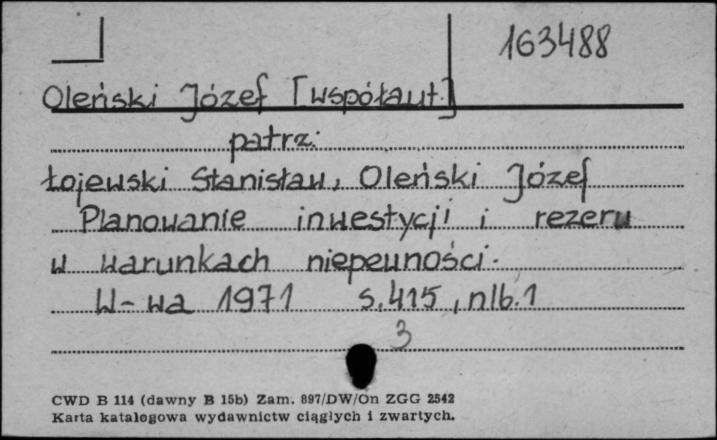 163488
Oleński Józef [współaut.]
patrz:
Łojewski Stanisław, Oleński Józef
Planowanie inwestycji i rezerw
w warunkach niepewności.
W-wa 1971 s. 415, nlb. 1
3
CWD B 114 (dawny B 15b) Zam. 897/DW/On ZGG 2542
Karta katalogowa wydawnictw ciągłych i zwartych.